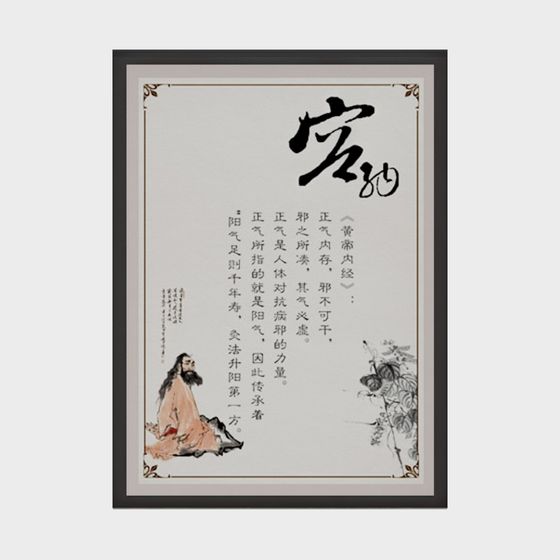 宫纳
《黄帝内经》：
正气内存，邪不可干，
邪之所凑，其气必虚。
正气是人体对抗病邪的力量。
正气所指的就是阳气，因此传承着
“阳气足则千年寿，灸法升阳第一方。